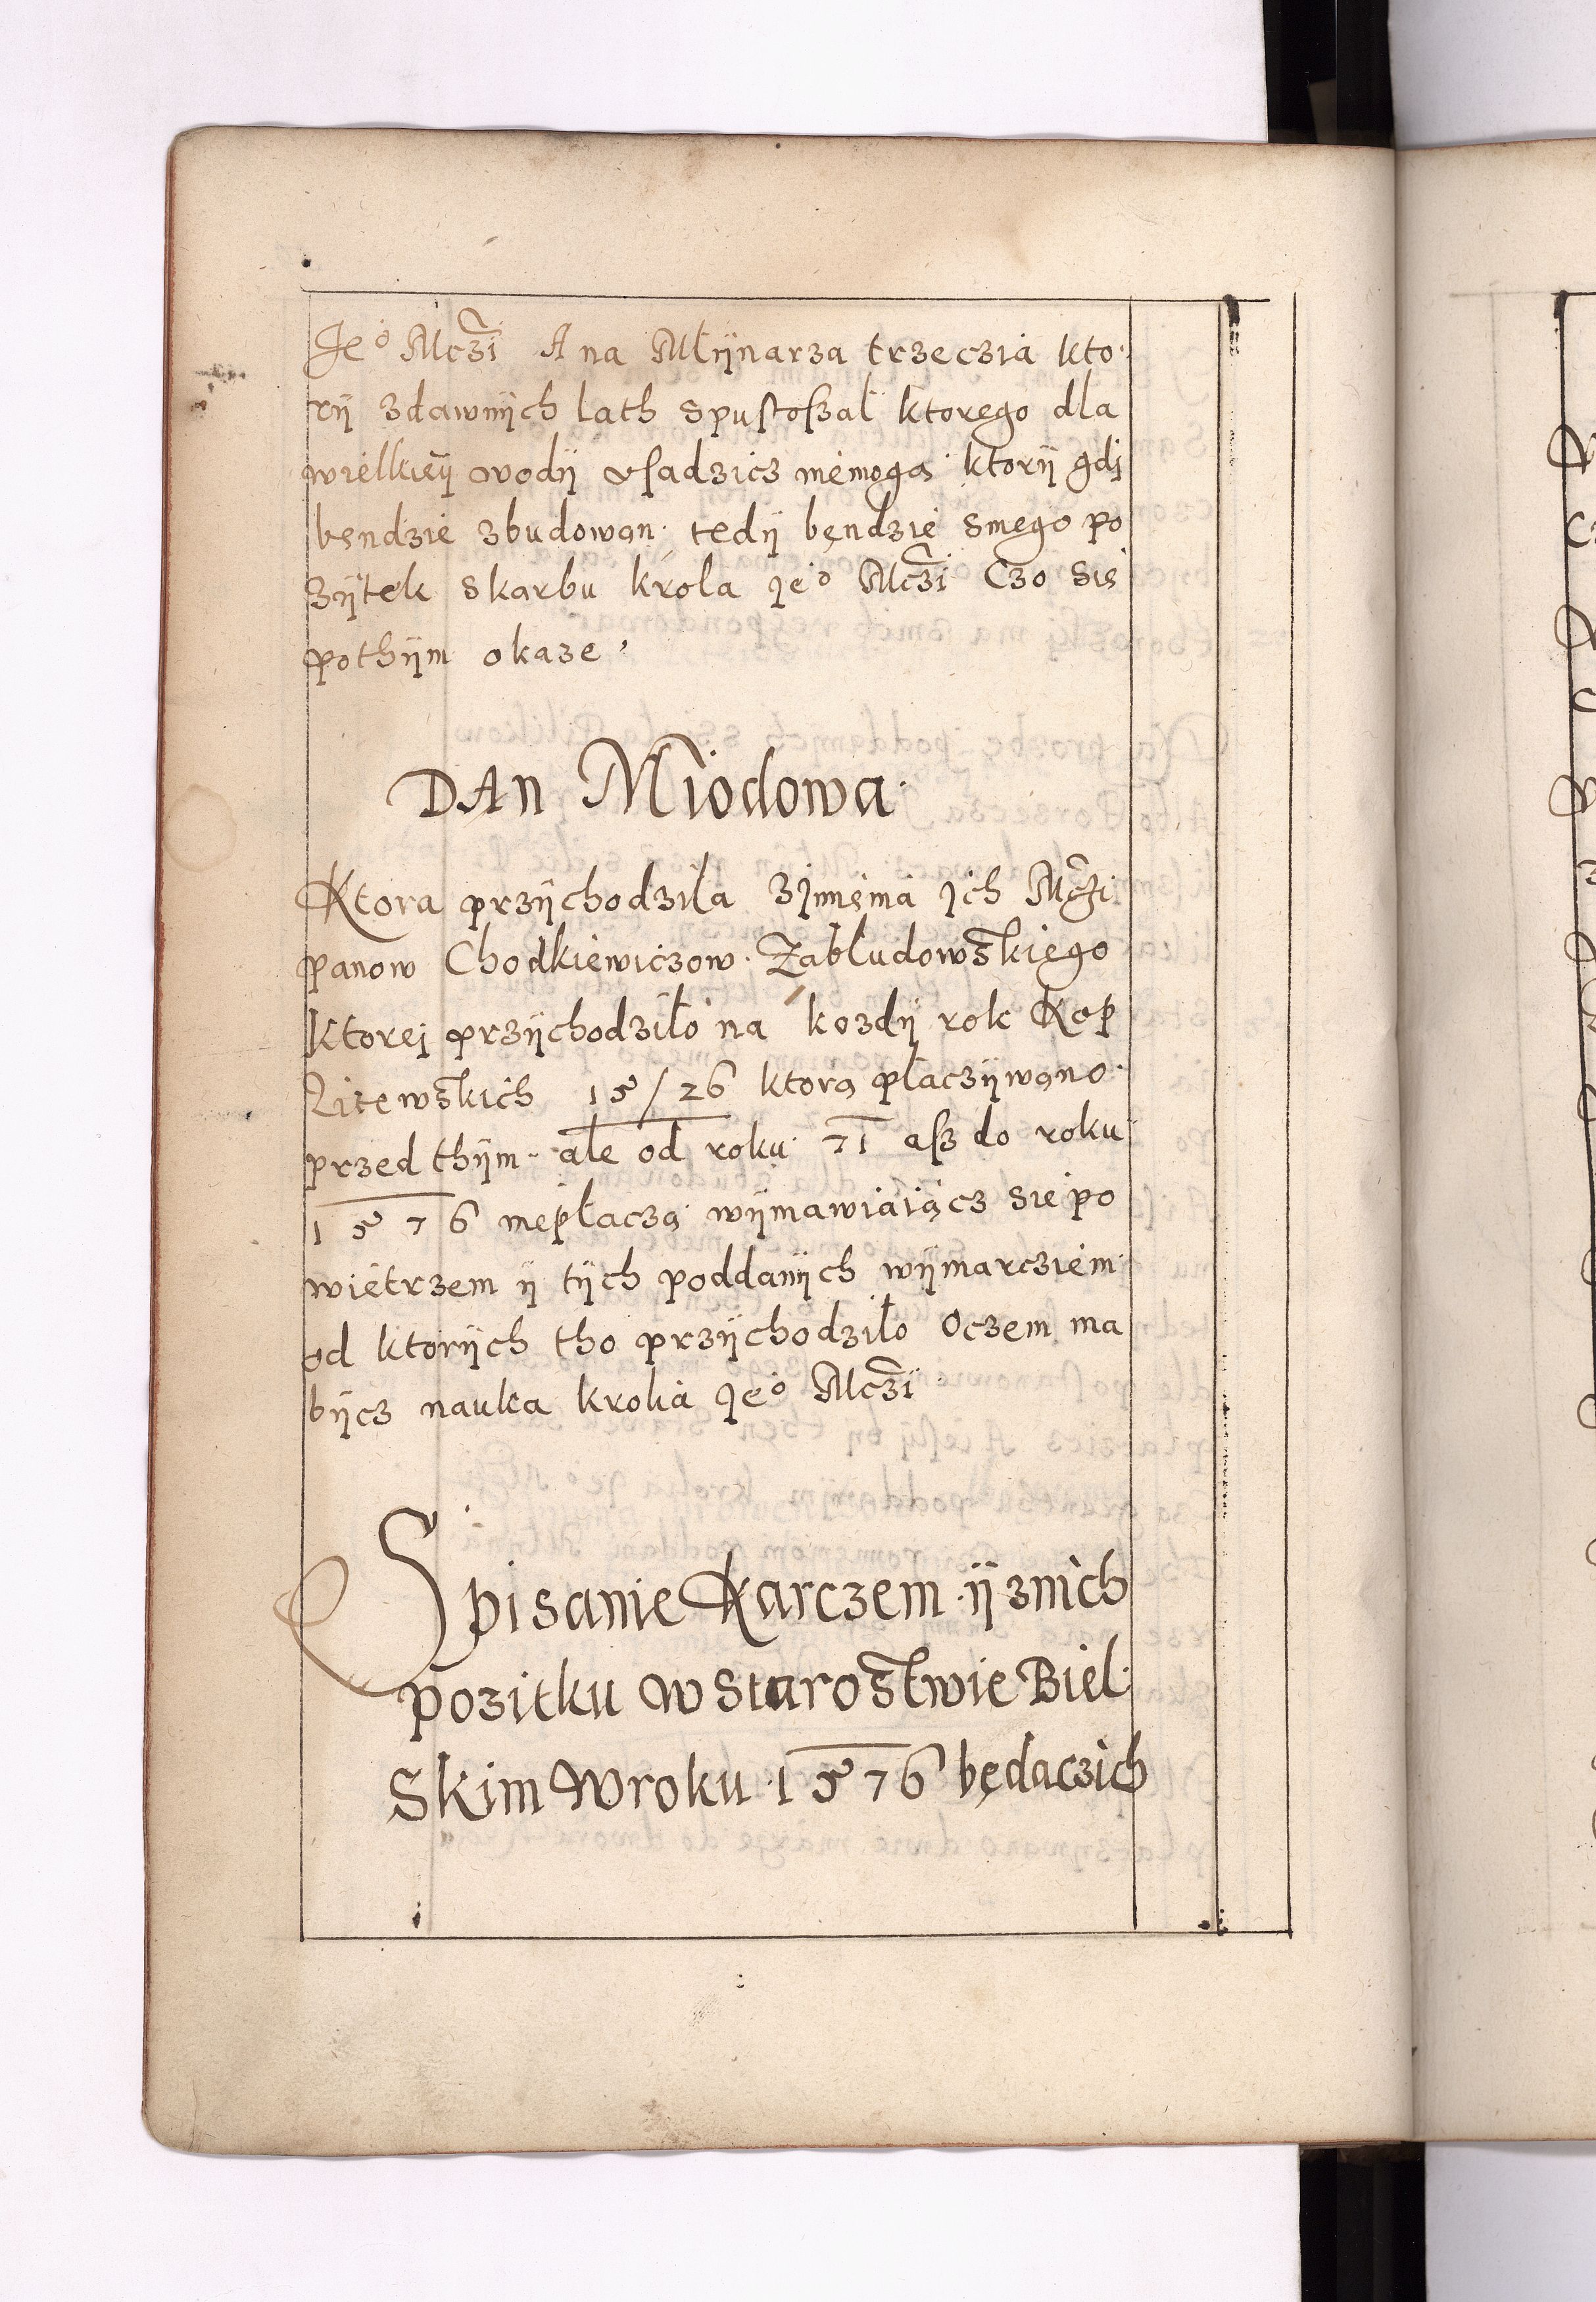 Jeº Mczi A na Młÿnarza trzeczia kto·
rÿ zdawnÿch lath spustoszał ktorego dla
wielkieÿ wodÿ vsadzicz niemogą ktorÿ gdj
będzie zbudowan· tedÿ bęndzie sniego po
zÿtek skarbu krola jeº Mczi Czo się
pothÿm okaze
DAn Miodowa·
Ktora przÿchodziła zjmienia jch Mczi
panow Chodkiewiczow· Zabludowskiego
ktorej przÿchodziło na kozdÿ rok Kop
Litewskich 15/26 ktorą płaczÿwano·
przed thÿm· ale od roku· 71 asz do roku
1576 niepłaczą wÿmawiaiącz sie po
wietrzem ÿ tÿch poddanÿch wÿmarcziem·
od ktorÿch tho przÿchodziło Oczem ma
bÿcz nauka krolia jeº Mczi
Spisanie Karczem ÿ znich
pozitku w Starostwie Biel·
Skim W roku 1576 będaczich